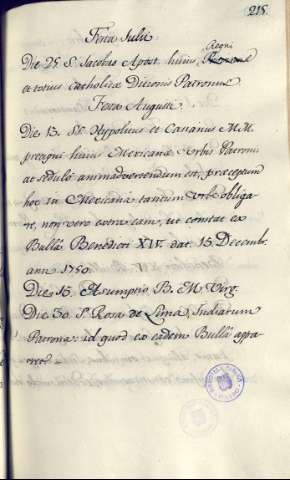 215.
Festa Julii
Die 25 S. Jacobus Apost. huius Regni Patronus
ac totius catholicæ Dicionis Patronus
Festa Augusti
Die 13. SS. Hyppolitus et Casianus M.M.
præcipui huius Mexicanæ Urbis Patroni
at sedulò animadvertendum est, præceptum
hoc in Mexicana tantum Urbe obliga
re, non vero extra eam, ut constat ex
Bullâ Benedict XIV. dat. 15 Decembr.
anni 1750.
Die 15. Assumptio B. M. Virg.
Die 30. S. Rosa de Lima, Indiarum
Patrona: id quod ex eadem Bullâ appa
ret.